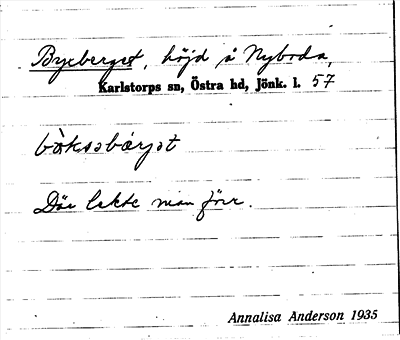 Byxeberget, höjd å Nyboda,
Karlstorps sn, Östra hd, Jönk. l. 57
bòksabærjət
Där lekte man förr.
Annalisa Anderson 1935